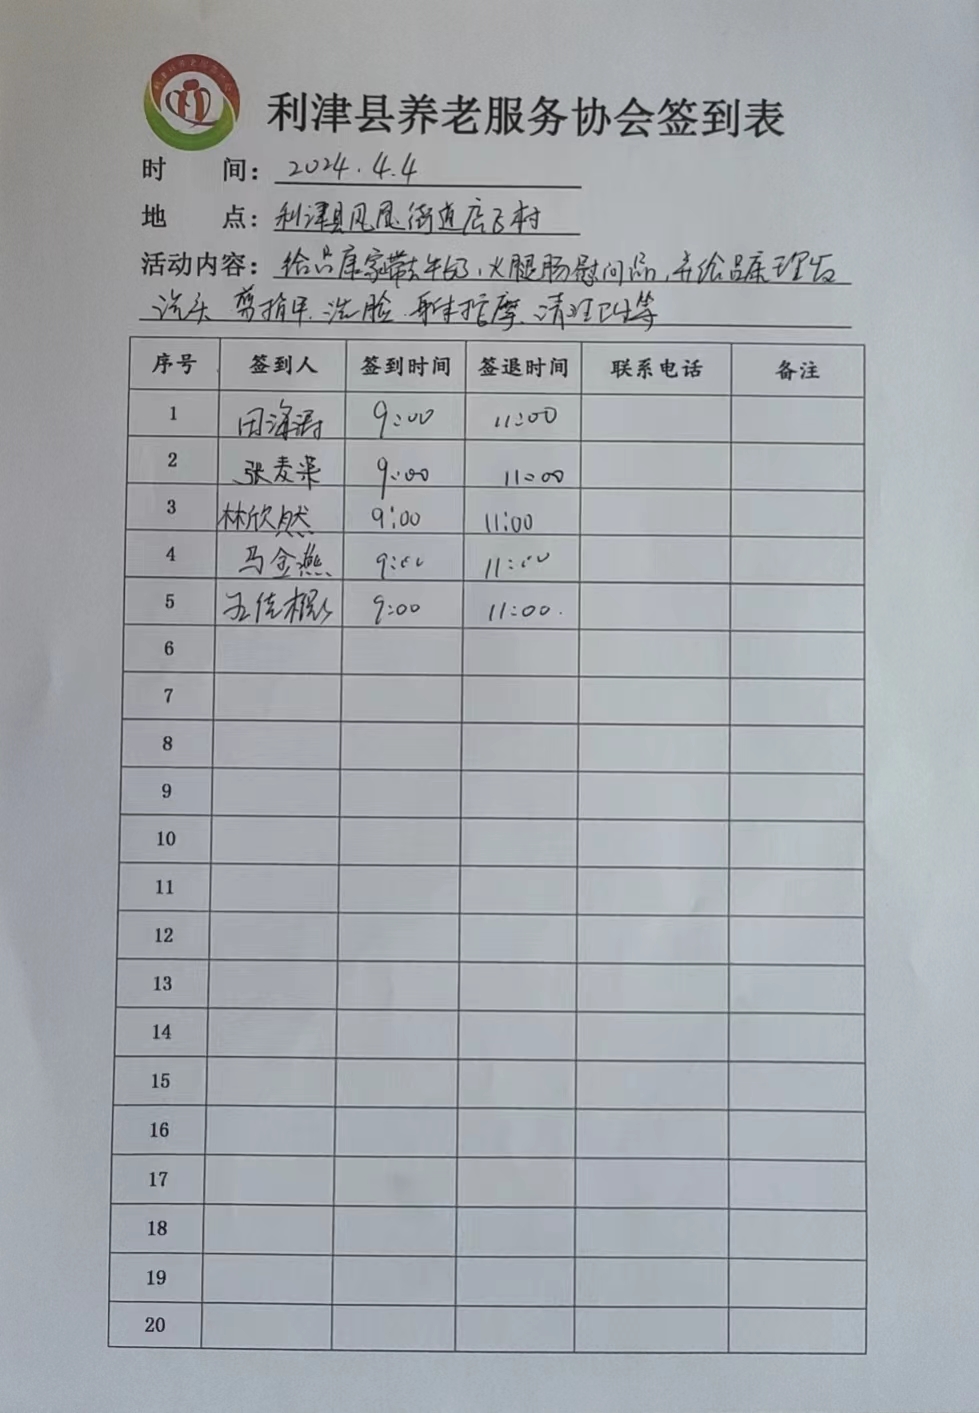 利津县养老服务协会签到表
时 间: 2024.4.4
地 点: 利津县凤凰街道店子村
活动内容: 给吕康家带去牛奶、火腿肠慰问品,并给吕康理发
洗头 剪指甲、洗脸、躯体按摩、清理卫生等
序号 签到人 签到时间 签退时间 联系电话 备注
1 田 9:00 11:00
2 张麦 9:00 11:00
3 林欣然 9:00 11:00
4 马金燕 9:00 11:00
5 佳 9:00 11:00.
6
7
8
9
10
11
12
13
14
15
16
17
18
19
20